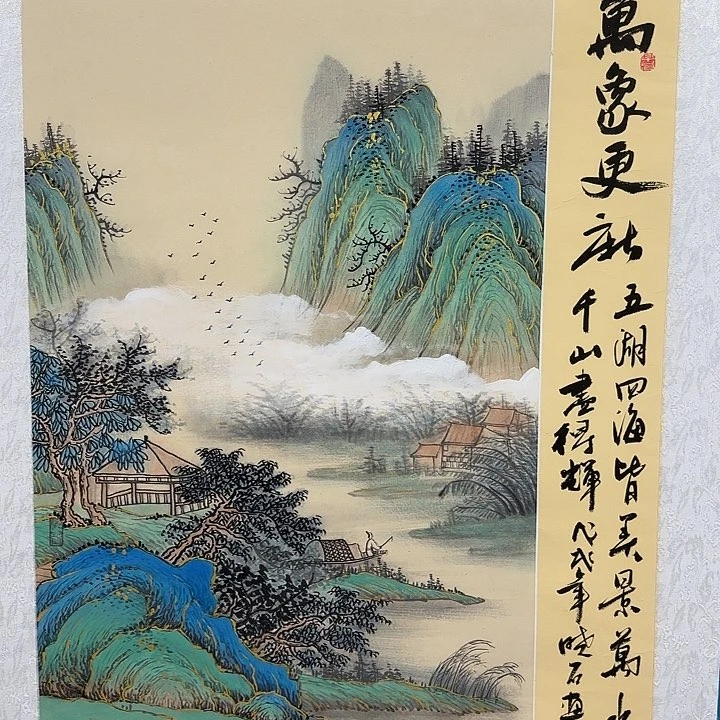 萬象更新
五湖四海皆美景萬
千山盡得輝 戊戌年曉石